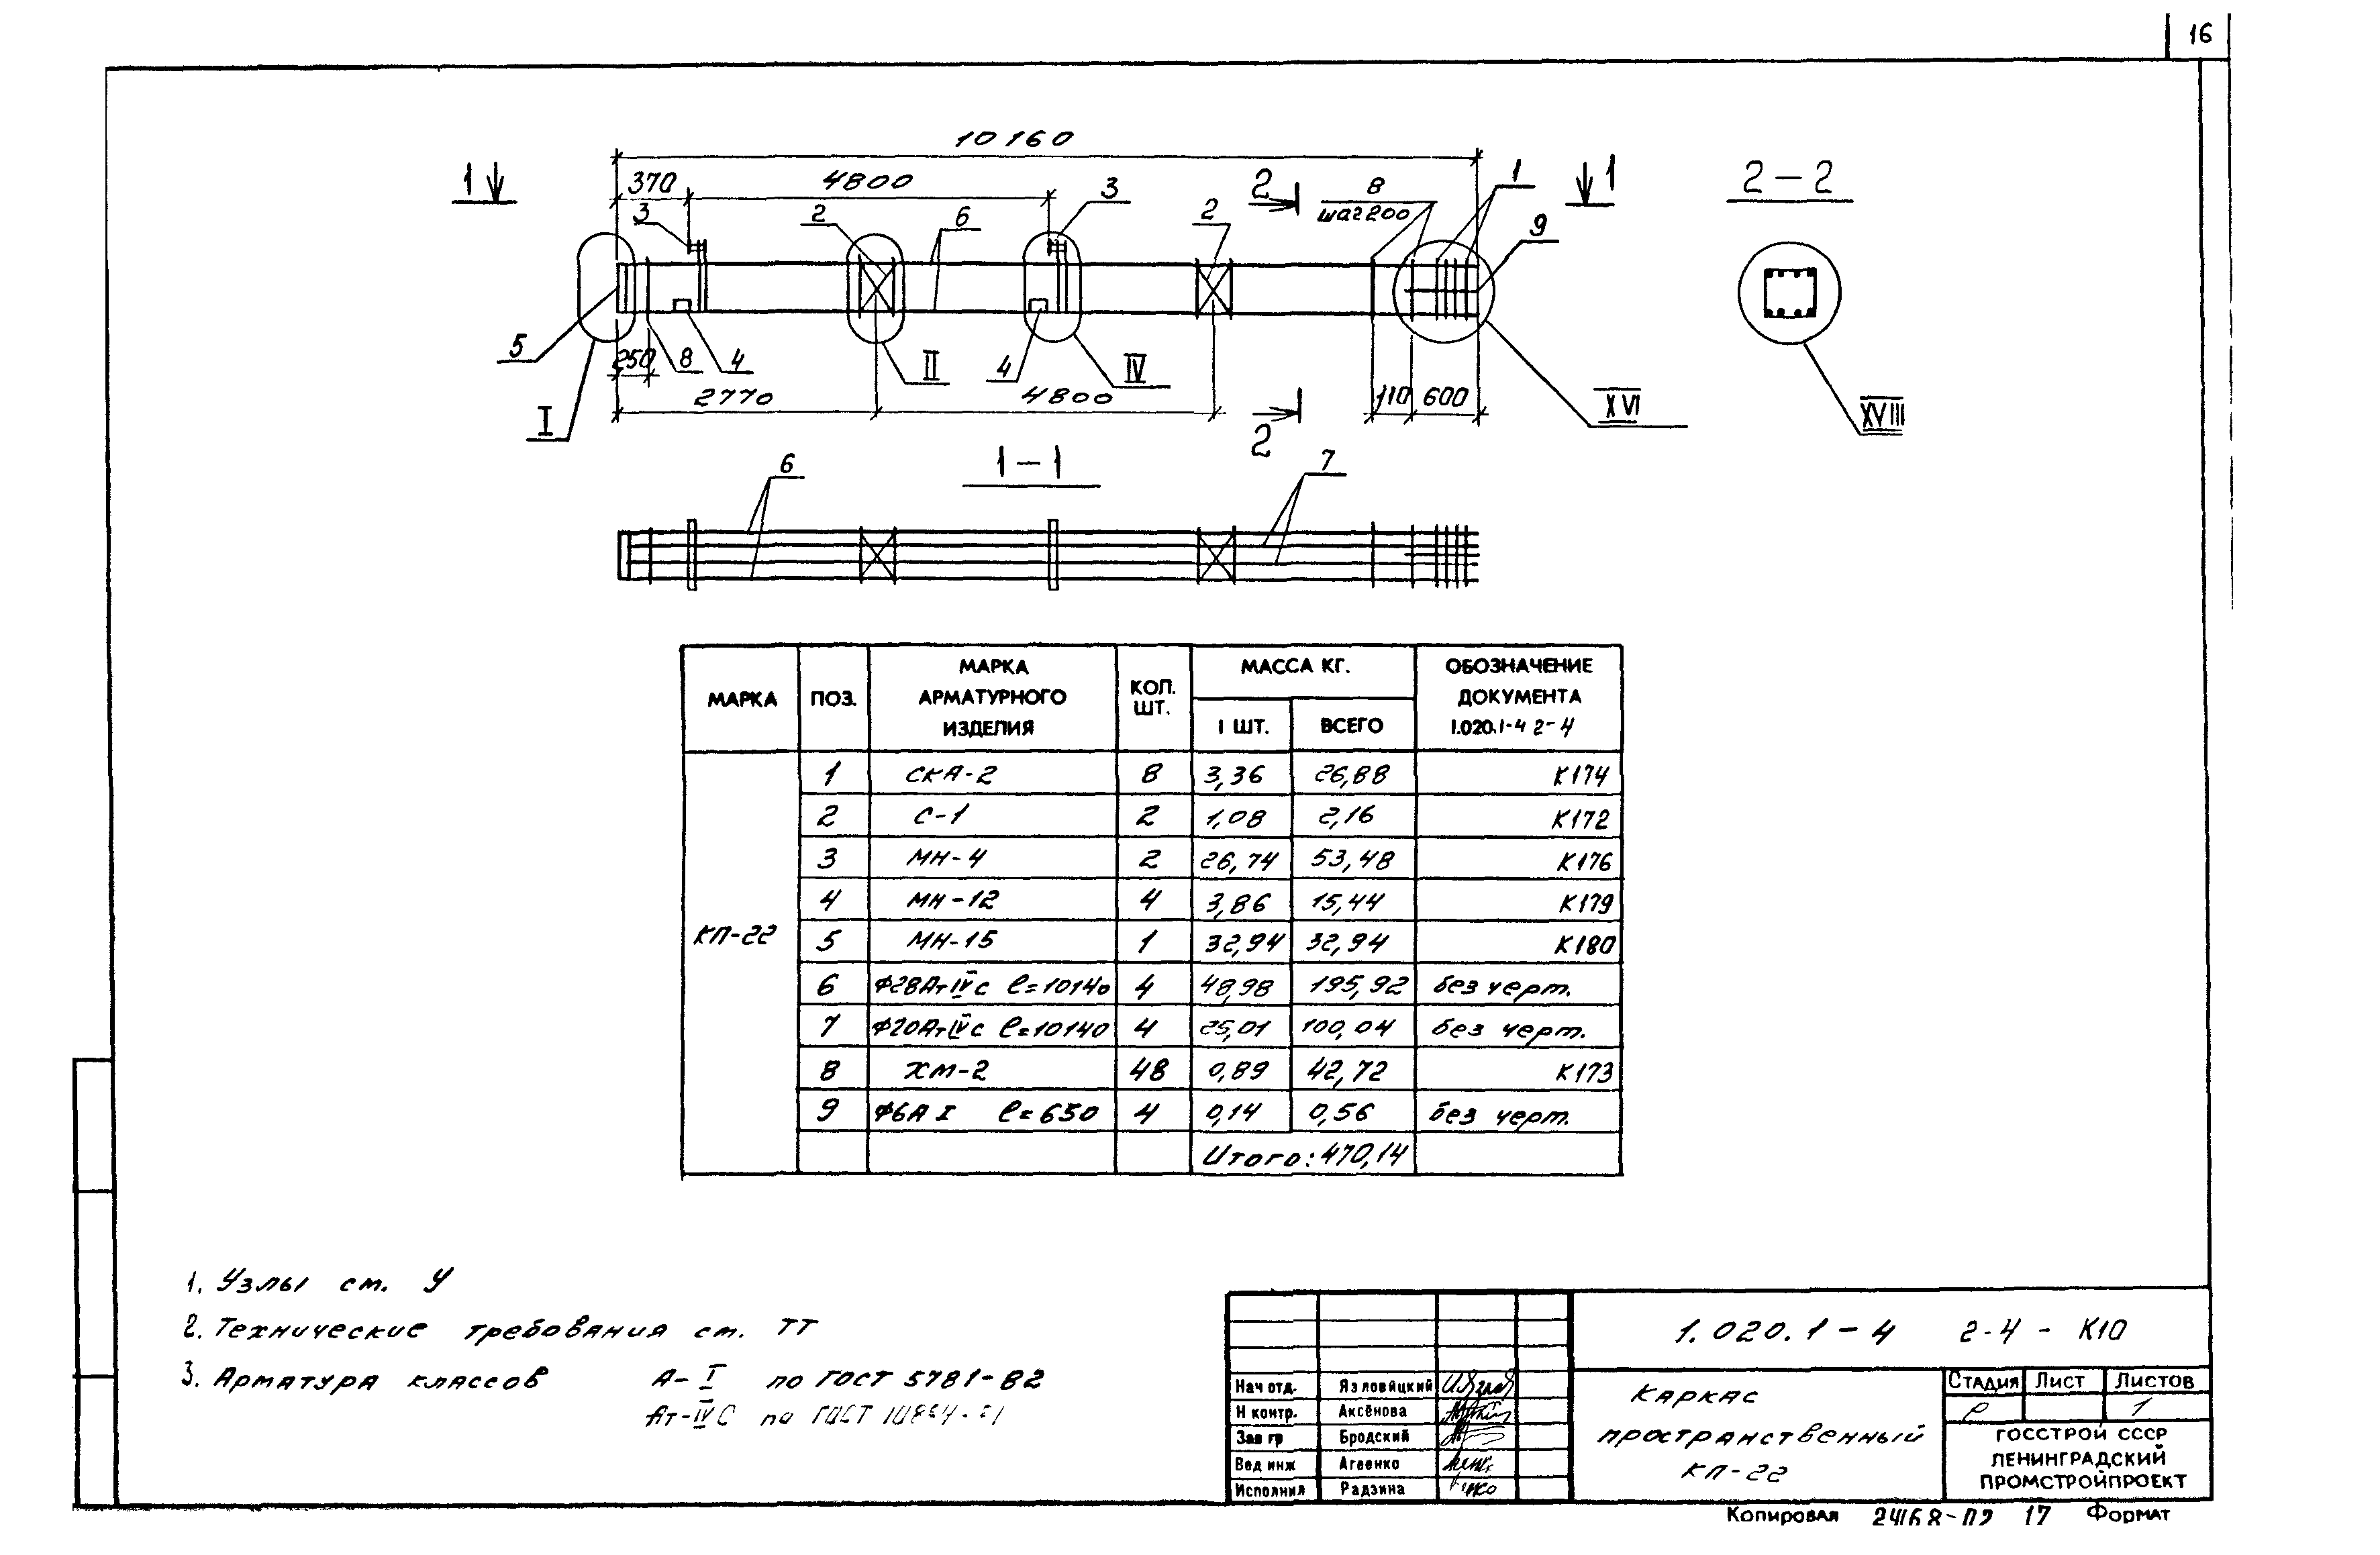 16
10160
370
4800
1
3
2
6
3
2
2
8
шаг 200
1
1
9
2-2
5
I
250
8
4
2770
II
4
IV
4800
2
110
600
XVI
XVIII
1-1
6
7
МАРКА
ПОЗ.
МАРКА АРМАТУРНОГО ИЗДЕЛИЯ
КОЛ. ШТ.
МАССА КГ.
1 ШТ.
ВСЕГО
ОБОЗНАЧЕНИЕ ДОКУМЕНТА 1.020.1-4 2-4
КП-22
1 СКА-2 8 3,36 26,88 К174
2 С-1 2 1,08 2,16 К172
3 МН-4 2 26,74 53,48 К176
4 МН-12 4 3,86 15,44 К179
5 МН-15 1 32,94 32,94 К180
6 Ф28Ат IV С ℓ=10140 4 48,98 195,92 без черт.
7 Ф20Ат IV С ℓ=10140 4 25,01 100,04 без черт.
8 ХМ-2 48 0,89 42,72 К173
9 Ф6А I ℓ=650 4 0,14 0,56 без черт.
Итого: 470,14
1. Узлы см. У
2. Технические требования см. ТТ
3. Арматура классов А-I по ГОСТ 5781-82
Ат-IV С по ГОСТ
1.020.1-4 2-4 - К10
Нач отд. Язловицкий
Н контр. Аксёнова
Зав гр Бродский
Вед инж Агеенко
Исполнил Радзина
Каркас
пространственный
КП-22
Стадия Лист Листов
Р 1
ГОССТРОЙ СССР
ЛЕНИНГРАДСКИЙ
ПРОМСТРОЙПРОЕКТ
Копировал 24168-02 17 Формат